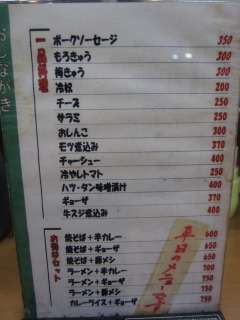 おしながき
一品料理
ポークソーセージ 350
もろきゅう 300
梅きゅう 300
冷松 200
チーズ 250
サラミ 250
おしんこ 300
モツ煮込み 370
チャーシュー 400
冷やしトマト 250
ハツ・タン味噌漬け 400
ギョーザ 370
牛スジ煮込み 400
お得なセット
焼そば+半カレー 600
焼そば+ギョーザ 650
焼そば+豚メシ 650
ラーメン+半カレー 700
ラーメン+ギョーザ
ラーメン+豚メシ
カレーライス+ギョーザ 750
平日のメニュー